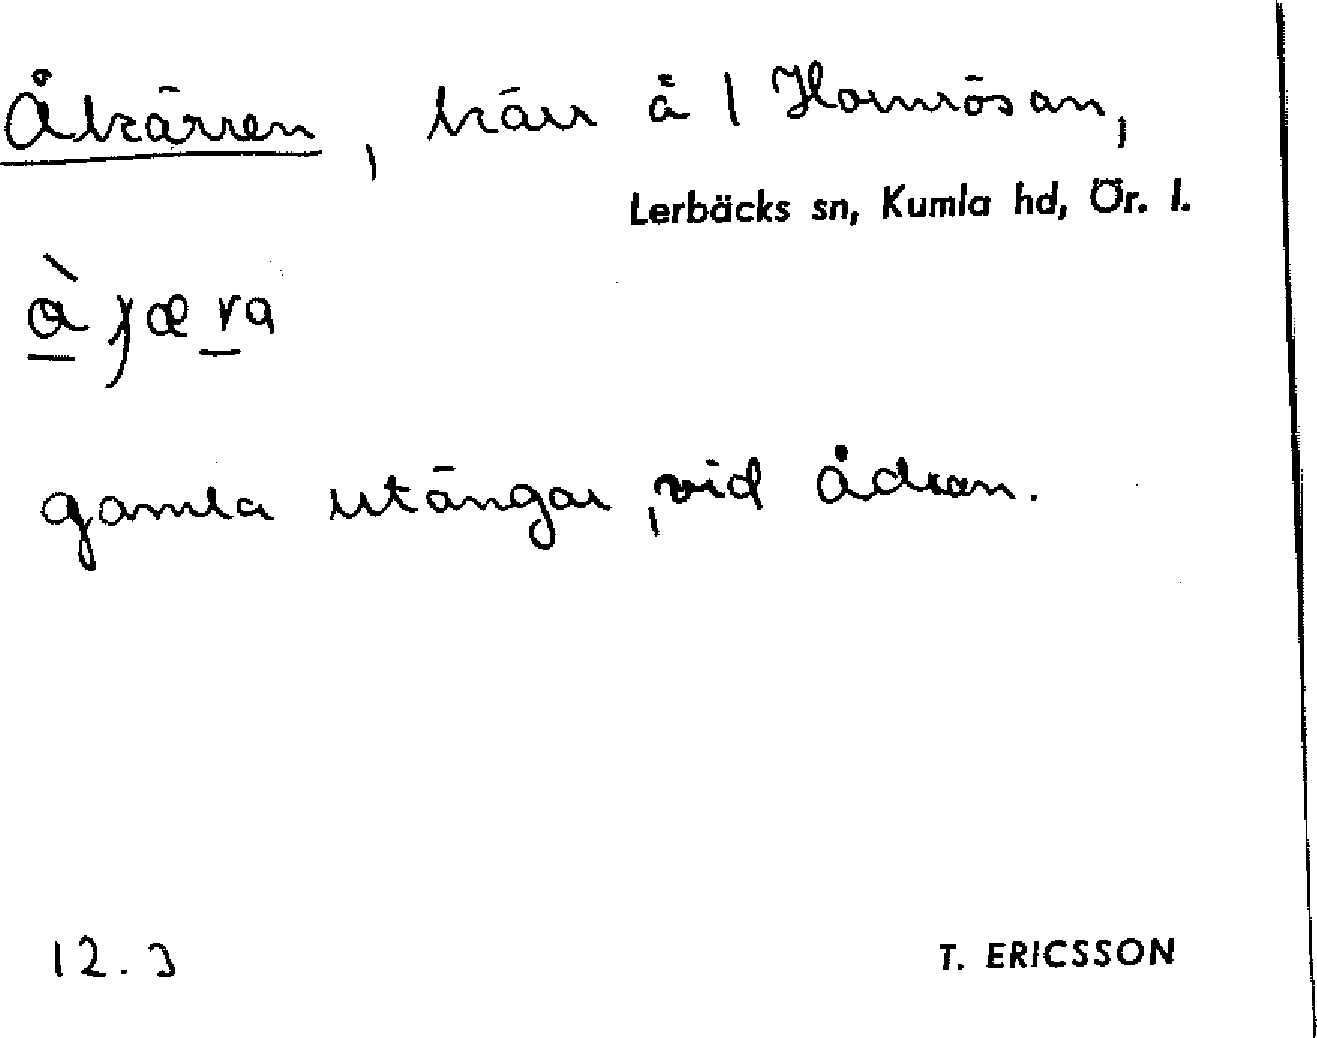 Åkärren, kärr å 1 Hamrösan,
Lerbäcks sn, Kumla hd, Ör. l.
gamla utängar, vid ådran.
12.3
T. ERICSSON